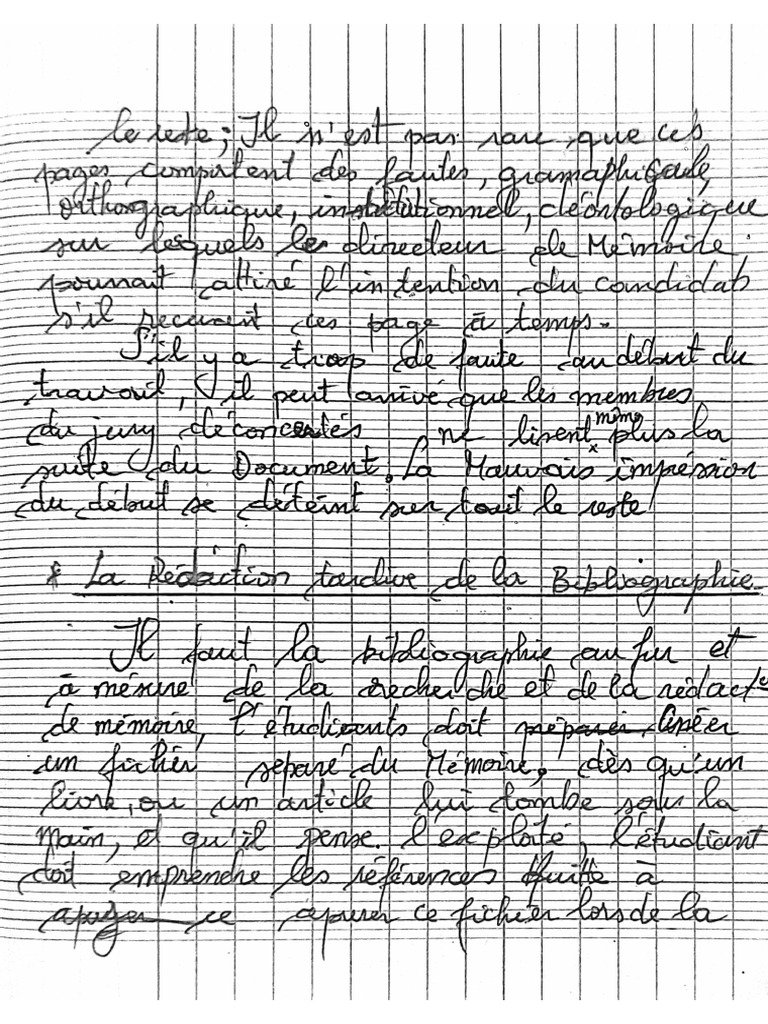 le reste; Il n'est pas rare que ces
pages comportent des fautes, gramaphicale,
orthographique, institutionnel, déontologique
sur lesquels le directeur de Mémoire
pourrait attiré l'intention du candidat
s'il recevait ces page à temps.
S'il y a trop de faute au début du
travail, il peut arrivé que les membres
du jury déconcertés ne lisent même plus la
suite du Document. La Mauvais impréssion
du début se déteint sur tout le reste
* La Rédaction tardive de la Bibliographie
Il faut la bibliographie au fur et
à mésure de la recherche et de la rédact°
de mémoire, l'étudiants doit préparer Créer
un fichier separé du Mémoire, dès qu'un
livre, ou un article lui tombe sous la
main, et qu'il pense l'exploité, l'étudiant
doit emprendre les références quitte à
ce apurer ce fichier lors de la